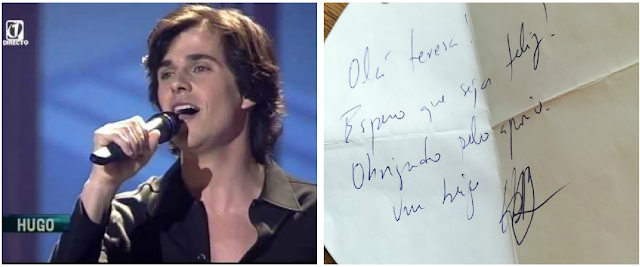 1
DIRECTO
HUGO
Olá Teresa!
Espero que sejas feliz!
Obrigado pelo apoio.
Um beijo